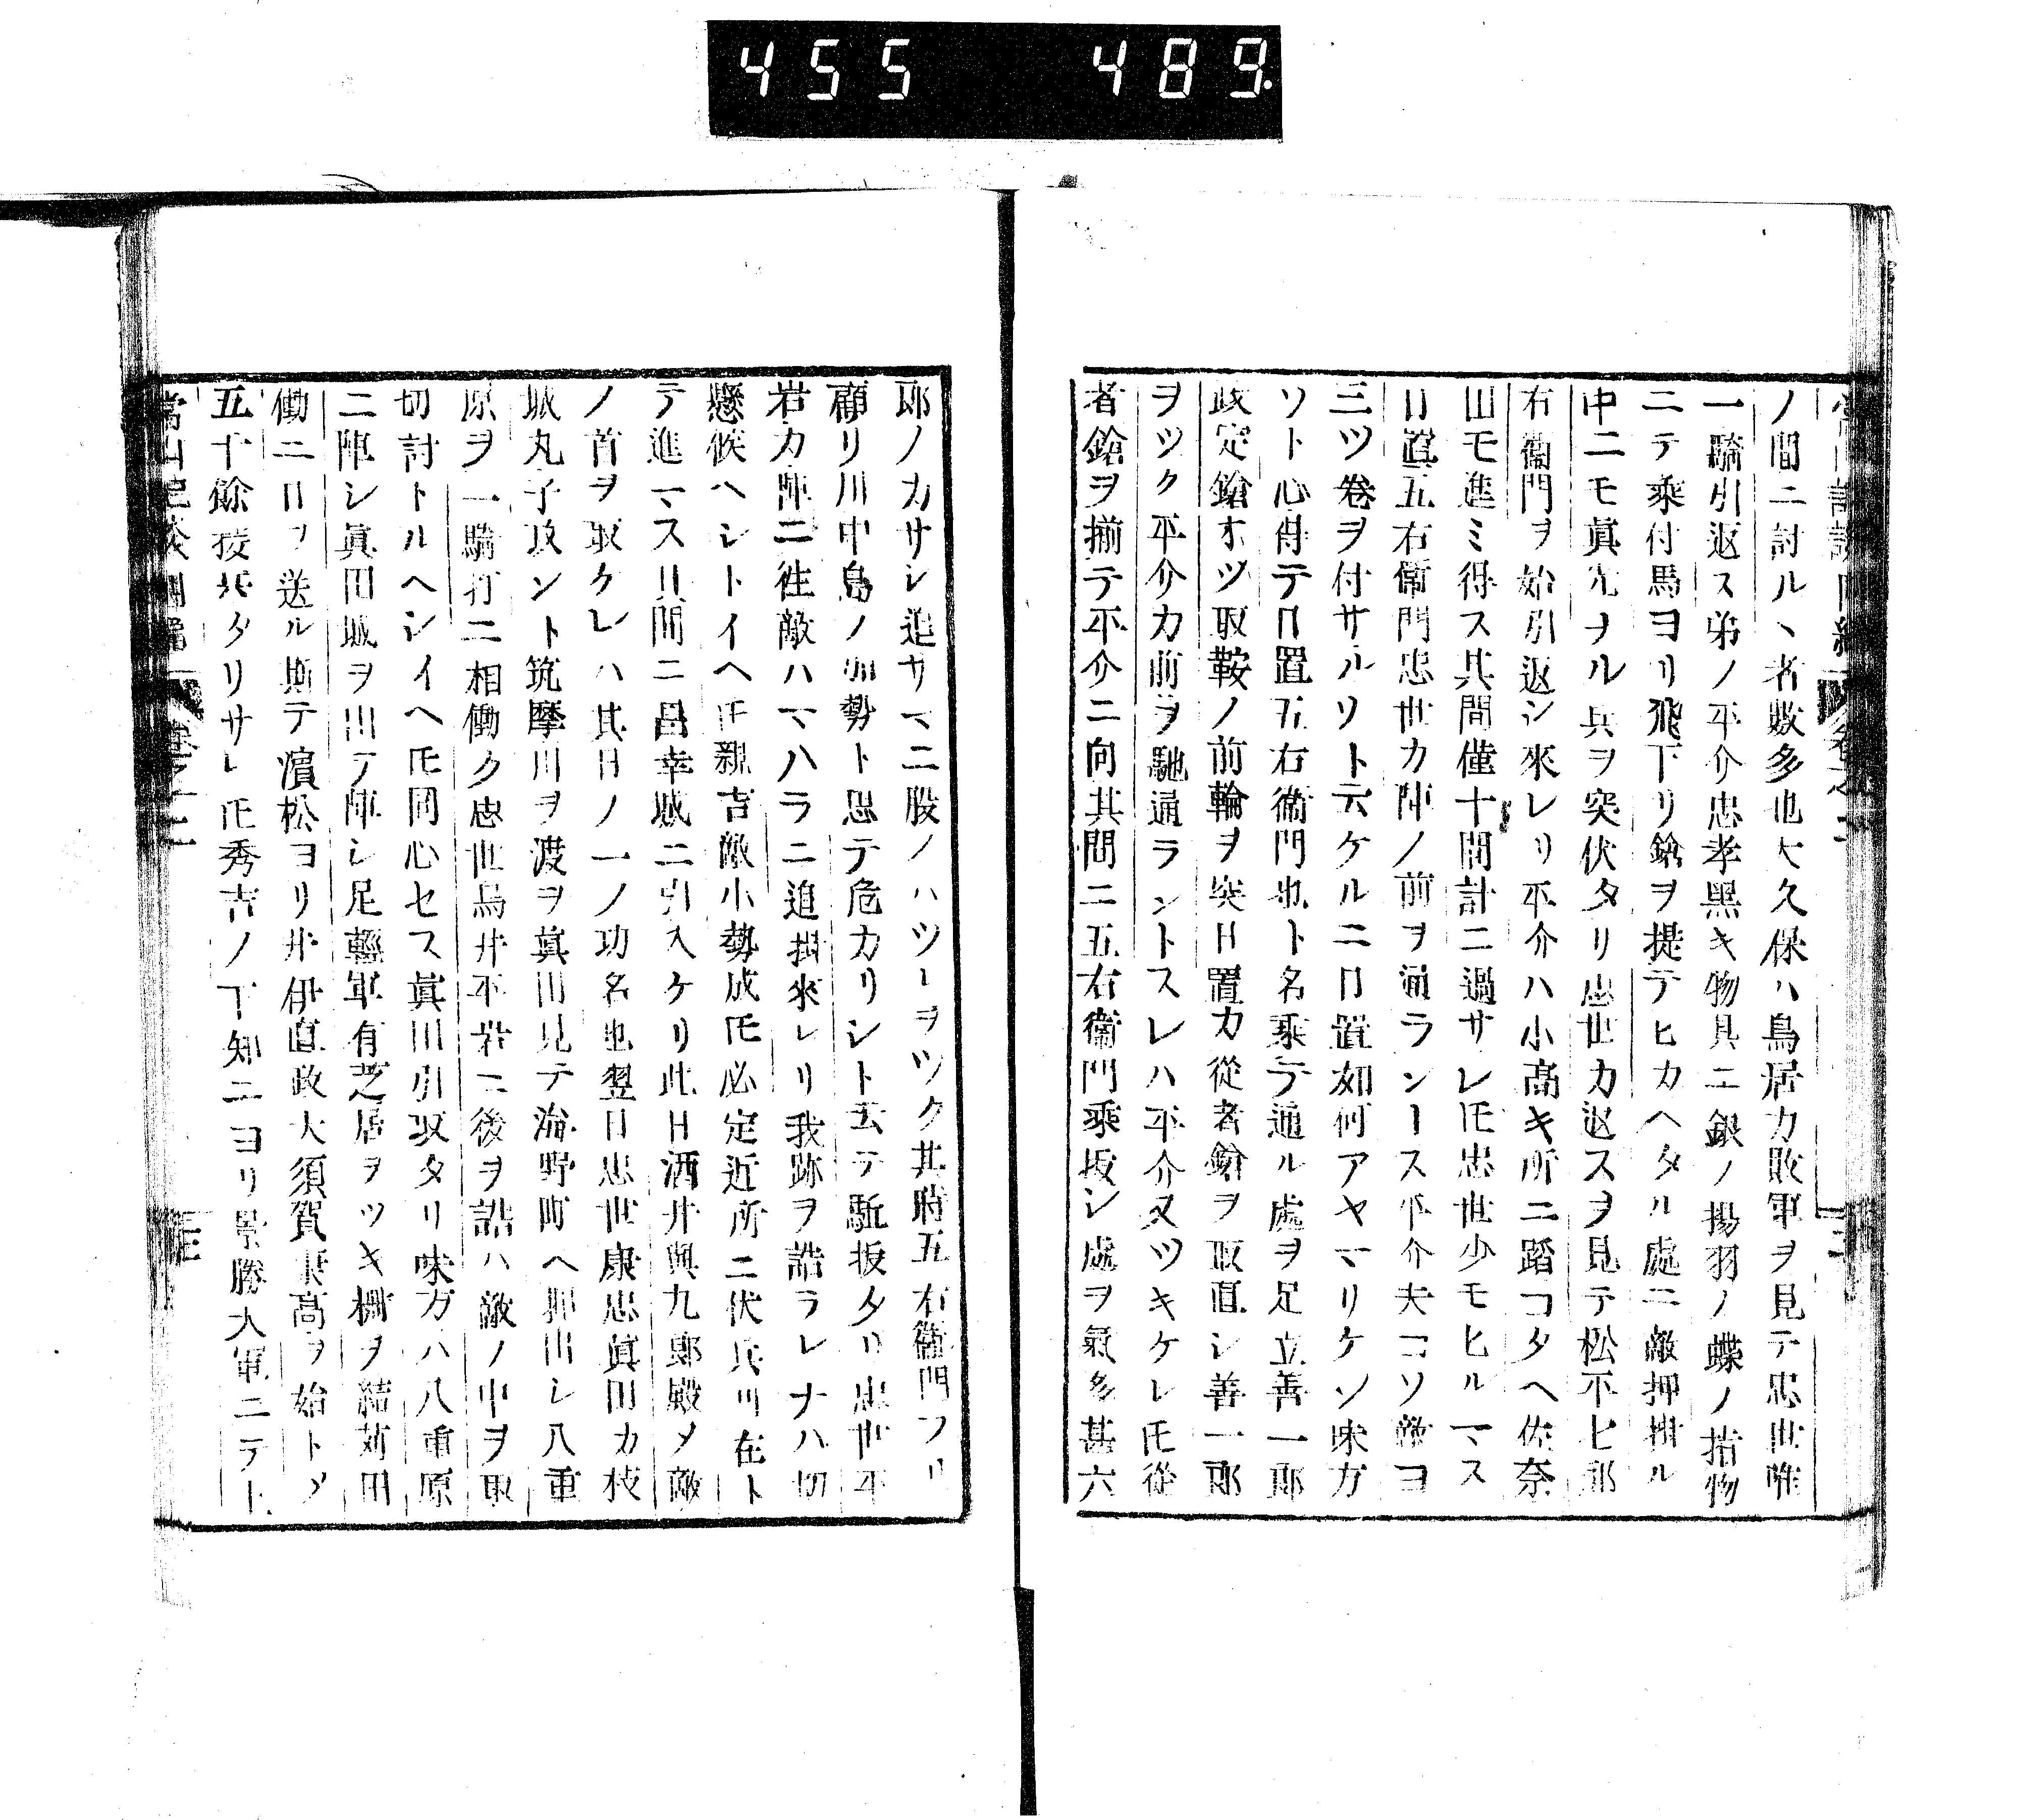 455 489
ノ間ニ討ルヽ者數多也大久保ハ鳥居カ敗軍ヲ見テ忠世唯
一騎引返ス弟ノ平介忠孝黑キ物具ニ銀ノ揚羽ノ蝶ノ指物
ニテ乘付馬ヨリ飛下リ鎗ヲ提テヒカヘタル處ニ敵押掛ル
中ニモ眞先ナル兵ヲ突伏タリ忠世カ返スヲ見テ松平七郎
右衞門ヲ始引返シ來レリ平介ハ小高キ所ニ踏コタヘ佐奈
田モ進ミ得ス其間僅十間計ニ過サレ𪜈忠世少モヒルマス
日置五右衞門忠世カ陣ノ前ヲ通ランース平介夫コソ敵ヨ
三ツ卷ヲ付サルソト云ケルニ日置如何アヤマリケン味方
ソト心得テ日置五右衞門也ト名乘テ通ル處ヲ足立善一郎
政定鎗オツ取鞍ノ前輪ヲ突日置カ從者鎗ヲ取直シ善一郎
ヲツク平介カ前ヲ馳通ラントスレハ平介又ツキケレ𪜈從
者鎗ヲ揃テ平介ニ向其間ニ五右衞門乘拔シ處ヲ氣多甚六
郎ノカサレ追サマニ股ノハツーヲツク其時五右衞門フリ
顧リ川中島ノ加勢ト思テ危カリシト云テ馳拔タリ忠世平
岩カ陣ニ往敵ハマハラニ追掛來レリ我跡ヲ詰ラレナハ切
懸候ヘシトイヘ𪜈親吉敵小勢成𪜈必定近所ニ伏兵可在ト
テ進マス其間ニ昌幸城ニ引入ケリ此日酒井與九郎殿メ敵
ノ首ヲ取ケレハ其日ノ一ノ功名也翌日忠世康忠眞田カ枝
城丸子攻ント筑摩川ヲ渡ヲ眞田見テ海野町ヘ押出レ八重
原ヲ一騎打ニ相働ク忠世鳥井平岩ニ後ヲ詰ハ敵ノ中ヲ取
切討トルヘシイヘ𪜈同心セス眞田引取タリ味方ハ八重原
ニ陣シ眞田城ヲ出テ陣シ足輕軍有芝居ヲツキ柵ヲ結苅田
働ニ日ヲ送ル斯テ濱松ヨリ井伊直政大須賀康高ヲ始トメ
五千餘援兵タリサレ𪜈秀吉ノ下知ニヨリ景勝大軍ニテ上